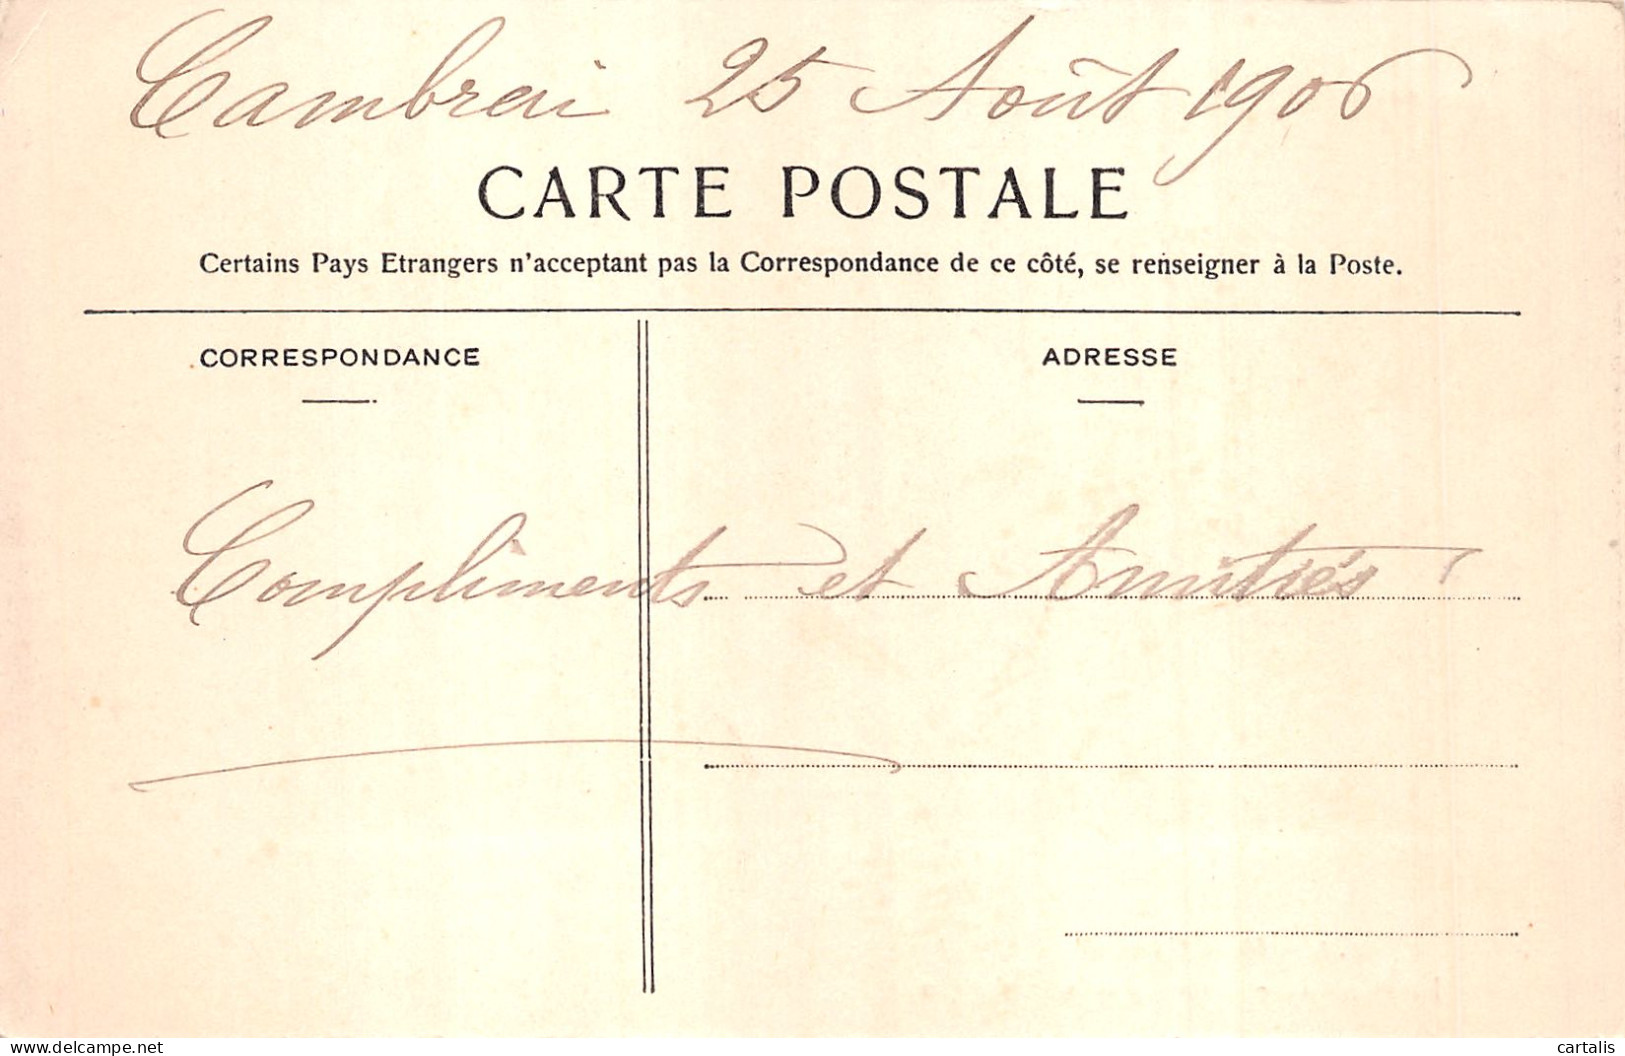 Cambrai 25 Août 1906
CARTE POSTALE
Certains Pays Etrangers n'acceptant pas la Correspondance de ce côté, se renseigner à la Poste.
CORRESPONDANCE
ADRESSE
Compliments et Amitiés
www.delcampe.net
cartalis